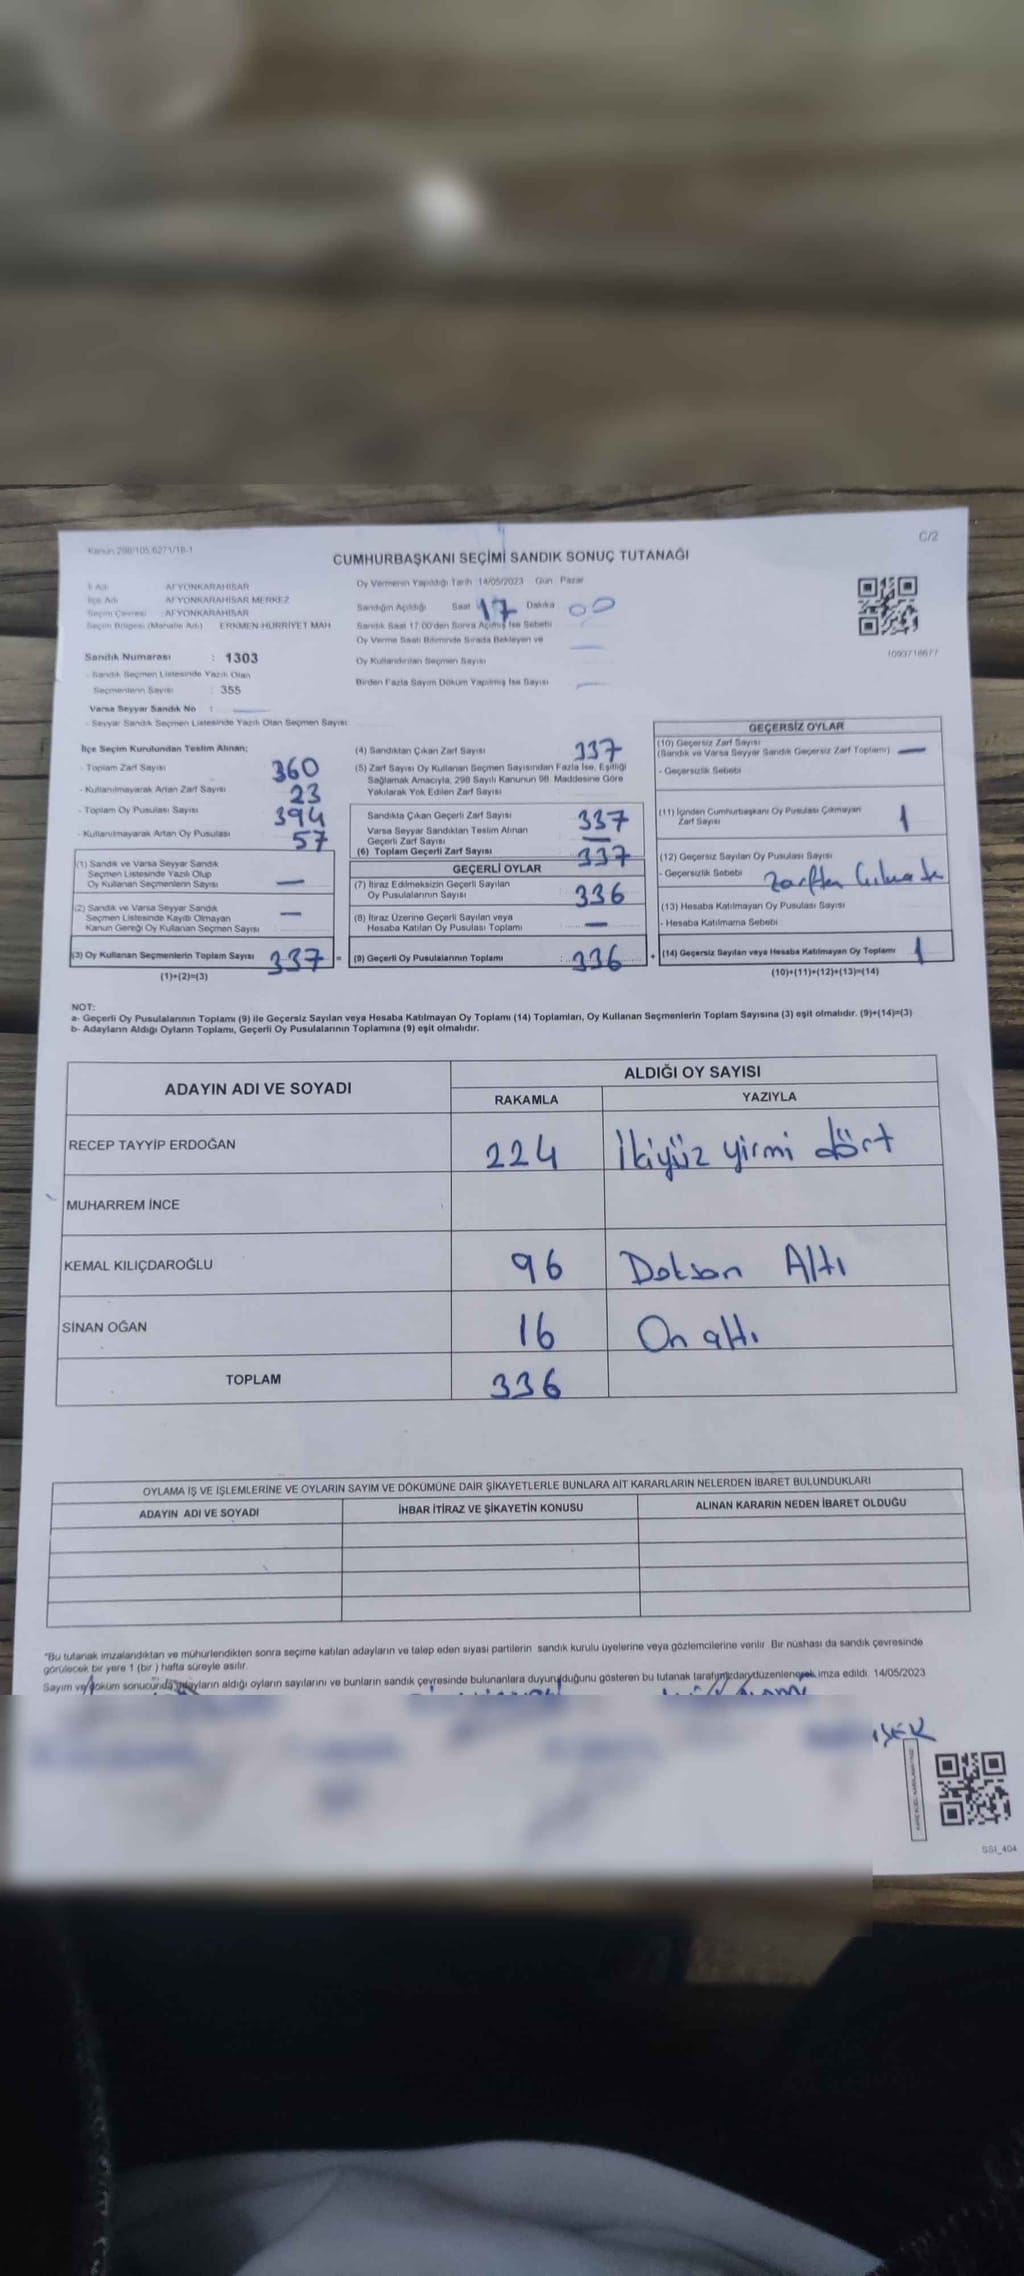 Kanun 298/105.6271/18-1
C/2
CUMHURBAŞKANI SEÇİMİ SANDIK SONUÇ TUTANAĞI
İl Adı : AFYONKARAHİSAR
İlçe Adı : AFYONKARAHİSAR MERKEZ
Seçim Çevresi : AFYONKARAHİSAR
Seçim Bölgesi (Mahalle Adı) : ERKMEN-HÜRRİYET MAH
Sandık Numarası : 1303
- Sandık Seçmen Listesinde Yazılı Olan
Seçmenlerin Sayısı : 355
Varsa Seyyar Sandık No :
- Seyyar Sandık Seçmen Listesinde Yazılı Olan Seçmen Sayısı
Oy Vermenin Yapıldığı Tarih 14/05/2023 Gün : Pazar
Sandığın Açıldığı Saat 17 Dakika 00
Sandık Saat 17:00'den Sonra Açılmış İse Sebebi
Oy Verme Saati Bitiminde Sırada Bekleyen ve
Oy Kullandırılan Seçmen Sayısı
Birden Fazla Sayım Döküm Yapılmış İse Sayısı
1093718677
İlçe Seçim Kurulundan Teslim Alınan;
- Toplam Zarf Sayısı 360
- Kullanılmayarak Artan Zarf Sayısı 23
- Toplam Oy Pusulası Sayısı 394
- Kullanılmayarak Artan Oy Pusulası 57
(1) Sandık ve Varsa Seyyar Sandık
Seçmen Listesinde Yazılı Olup
Oy Kullanan Seçmenlerin Sayısı —
(2) Sandık ve Varsa Seyyar Sandık
Seçmen Listesinde Kayıtlı Olmayan
Kanun Gereği Oy Kullanan Seçmen Sayısı —
(3) Oy Kullanan Seçmenlerin Toplam Sayısı 337 =
(1)+(2)=(3)
(4) Sandıktan Çıkan Zarf Sayısı 337
(5) Zarf Sayısı Oy Kullanan Seçmen Sayısından Fazla İse, Eşitliği
Sağlamak Amacıyla, 298 Sayılı Kanunun 98. Maddesine Göre
Yakılarak Yok Edilen Zarf Sayısı
Sandıkta Çıkan Geçerli Zarf Sayısı 337
Varsa Seyyar Sandıktan Teslim Alınan
Geçerli Zarf Sayısı —
(6) Toplam Geçerli Zarf Sayısı 337
GEÇERLİ OYLAR
(7) İtiraz Edilmeksizin Geçerli Sayılan
Oy Pusulalarının Sayısı 336
(8) İtiraz Üzerine Geçerli Sayılan veya
Hesaba Katılan Oy Pusulası Toplamı —
(9) Geçerli Oy Pusulalarının Toplamı : 336 +
GEÇERSİZ OYLAR
(10) Geçersiz Zarf Sayısı
(Sandık ve Varsa Seyyar Sandık Geçersiz Zarf Toplamı) —
- Geçersizlik Sebebi
(11) İçinden Cumhurbaşkanı Oy Pusulası Çıkmayan
Zarf Sayısı 1
(12) Geçersiz Sayılan Oy Pusulası Sayısı
- Geçersizlik Sebebi zarftan
(13) Hesaba Katılmayan Oy Pusulası Sayısı
- Hesaba Katılmama Sebebi
(14) Geçersiz Sayılan veya Hesaba Katılmayan Oy Toplamı 1
(10)+(11)+(12)+(13)=(14)
NOT:
a- Geçerli Oy Pusulalarının Toplamı (9) ile Geçersiz Sayılan veya Hesaba Katılmayan Oy Toplamı (14) Toplamları, Oy Kullanan Seçmenlerin Toplam Sayısına (3) eşit olmalıdır. (9)+(14)=(3)
b- Adayların Aldığı Oyların Toplamı, Geçerli Oy Pusulalarının Toplamına (9) eşit olmalıdır.
ADAYIN ADI VE SOYADI
ALDIĞI OY SAYISI
RAKAMLA YAZIYLA
RECEP TAYYİP ERDOĞAN 224 İkiyüz yirmi dört
MUHARREM İNCE
KEMAL KILIÇDAROĞLU 96 Doksan Altı
SİNAN OĞAN 16 On altı
TOPLAM 336
OYLAMA İŞ VE İŞLEMLERİNE VE OYLARIN SAYIM VE DÖKÜMÜNE DAİR ŞİKAYETLERLE BUNLARA AİT KARARLARIN NELERDEN İBARET BULUNDUKLARI
ADAYIN ADI VE SOYADI İHBAR İTİRAZ VE ŞİKAYETİN KONUSU ALINAN KARARIN NEDEN İBARET OLDUĞU
*Bu tutanak imzalandıktan ve mühürlendikten sonra seçime katılan adayların ve talep eden siyasi partilerin sandık kurulu üyelerine veya gözlemcilerine verilir. Bir nüshası da sandık çevresinde
görülecek bir yere 1 (bir ) hafta süreyle asılır.
Sayım ve döküm sonucunda adayların aldığı oyların sayılarını ve bunların sandık çevresinde bulunanlara duyurulduğunu gösteren bu tutanak tarafımızdan düzenlenerek imza edildi. 14/05/2023
SSI_404